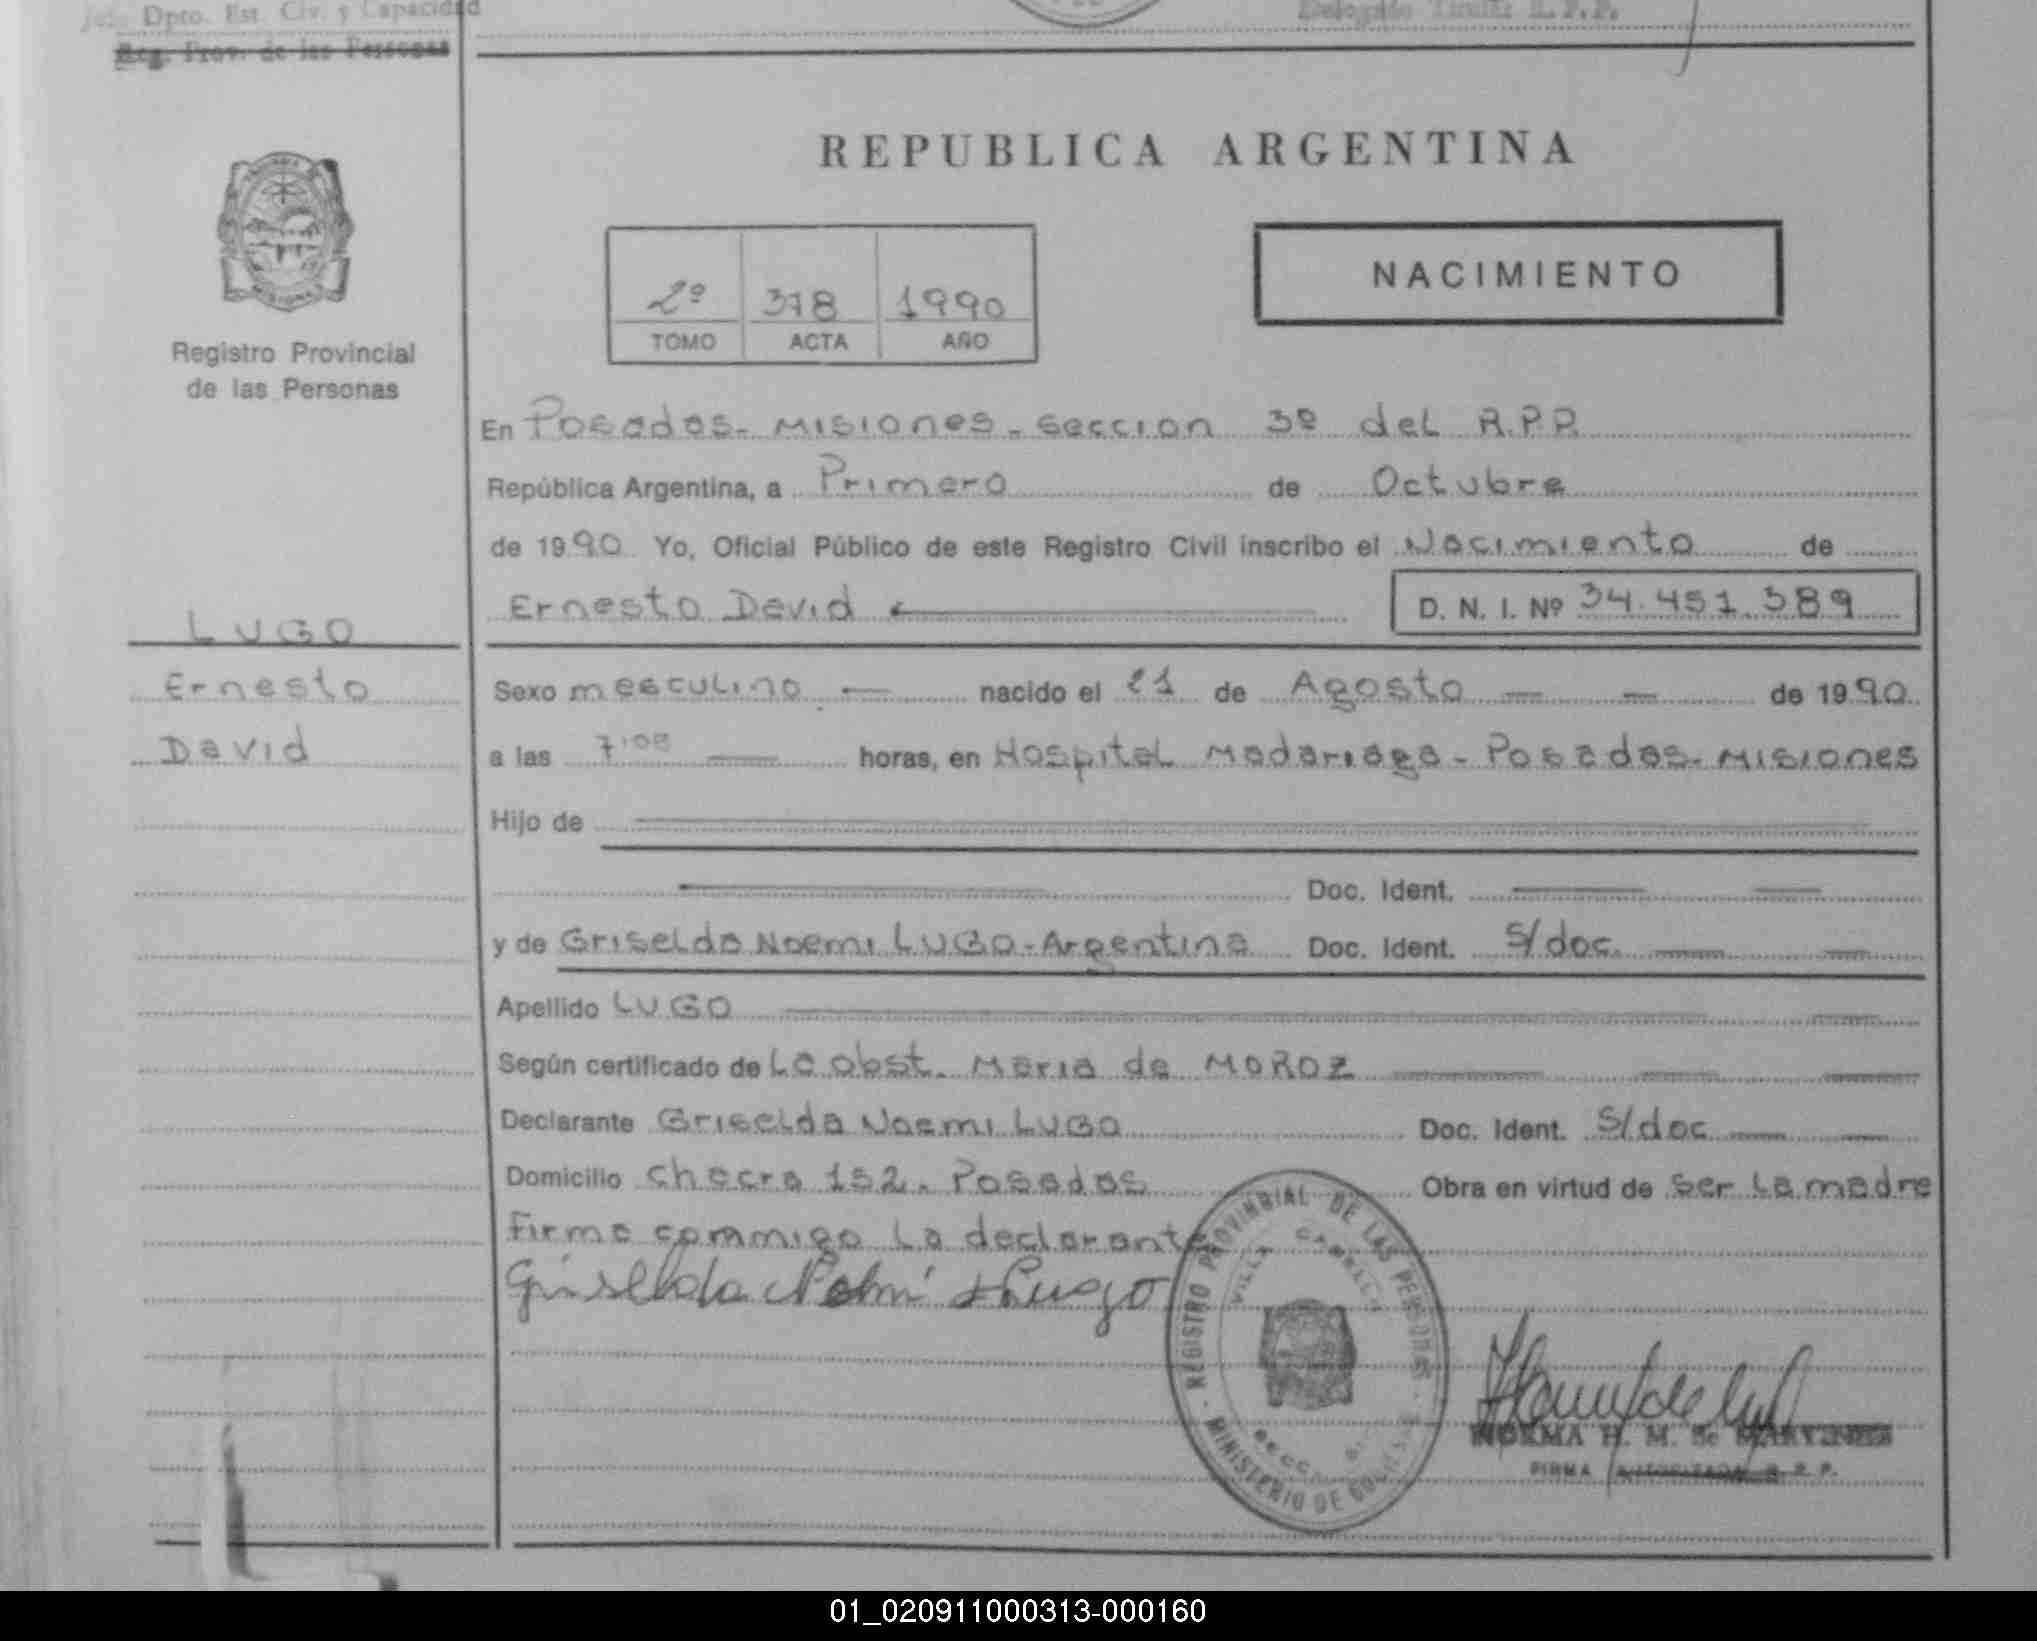 Jefe Dpto. Est. Civ. y Capacidad
Reg. Prov. de las Personas
Delegado Titular R.P.P.
REPUBLICA ARGENTINA
NACIMIENTO
2º 378 1990
TOMO ACTA AÑO
Registro Provincial
de las Personas
En Posadas - Misiones - Seccion 3º del R.P.P.
República Argentina, a Primero de Octubre
de 1990 Yo, Oficial Público de este Registro Civil inscribo el Nacimiento de
Ernesto David D. N. I. Nº 34.451.389
LUGO
Ernesto
David
Sexo masculino nacido el 21 de Agosto de 1990
a las 7:08 horas, en Hospital Madariaga - Posadas - Misiones
Hijo de
Doc. Ident.
y de Griselda Noemi LUGO - Argentina Doc. Ident. S/doc.
Apellido LUGO
Según certificado de La obst. Maria de MOROZ
Declarante Griselda Noemi LUGO Doc. Ident. S/doc
Domicilio Chacra 152. Posadas Obra en virtud de ser La madre
Firma commigo La declarante
Griselda Noemi Lugo
REGISTRO PROVINCIAL DE LAS PERSONAS
VILLA CABELLO
MINISTERIO DE GOBIERNO
NORMA H. M. de MARTINEZ
FIRMA AUTORIZADA R. P. P.
01_020911000313-000160